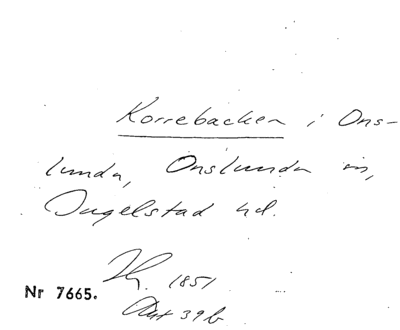 Korrebacken i Ons-
lunda, Onslunda sn,
Ingelstad hd.
Hg. 1851
Nr 7665.
Akt 39b